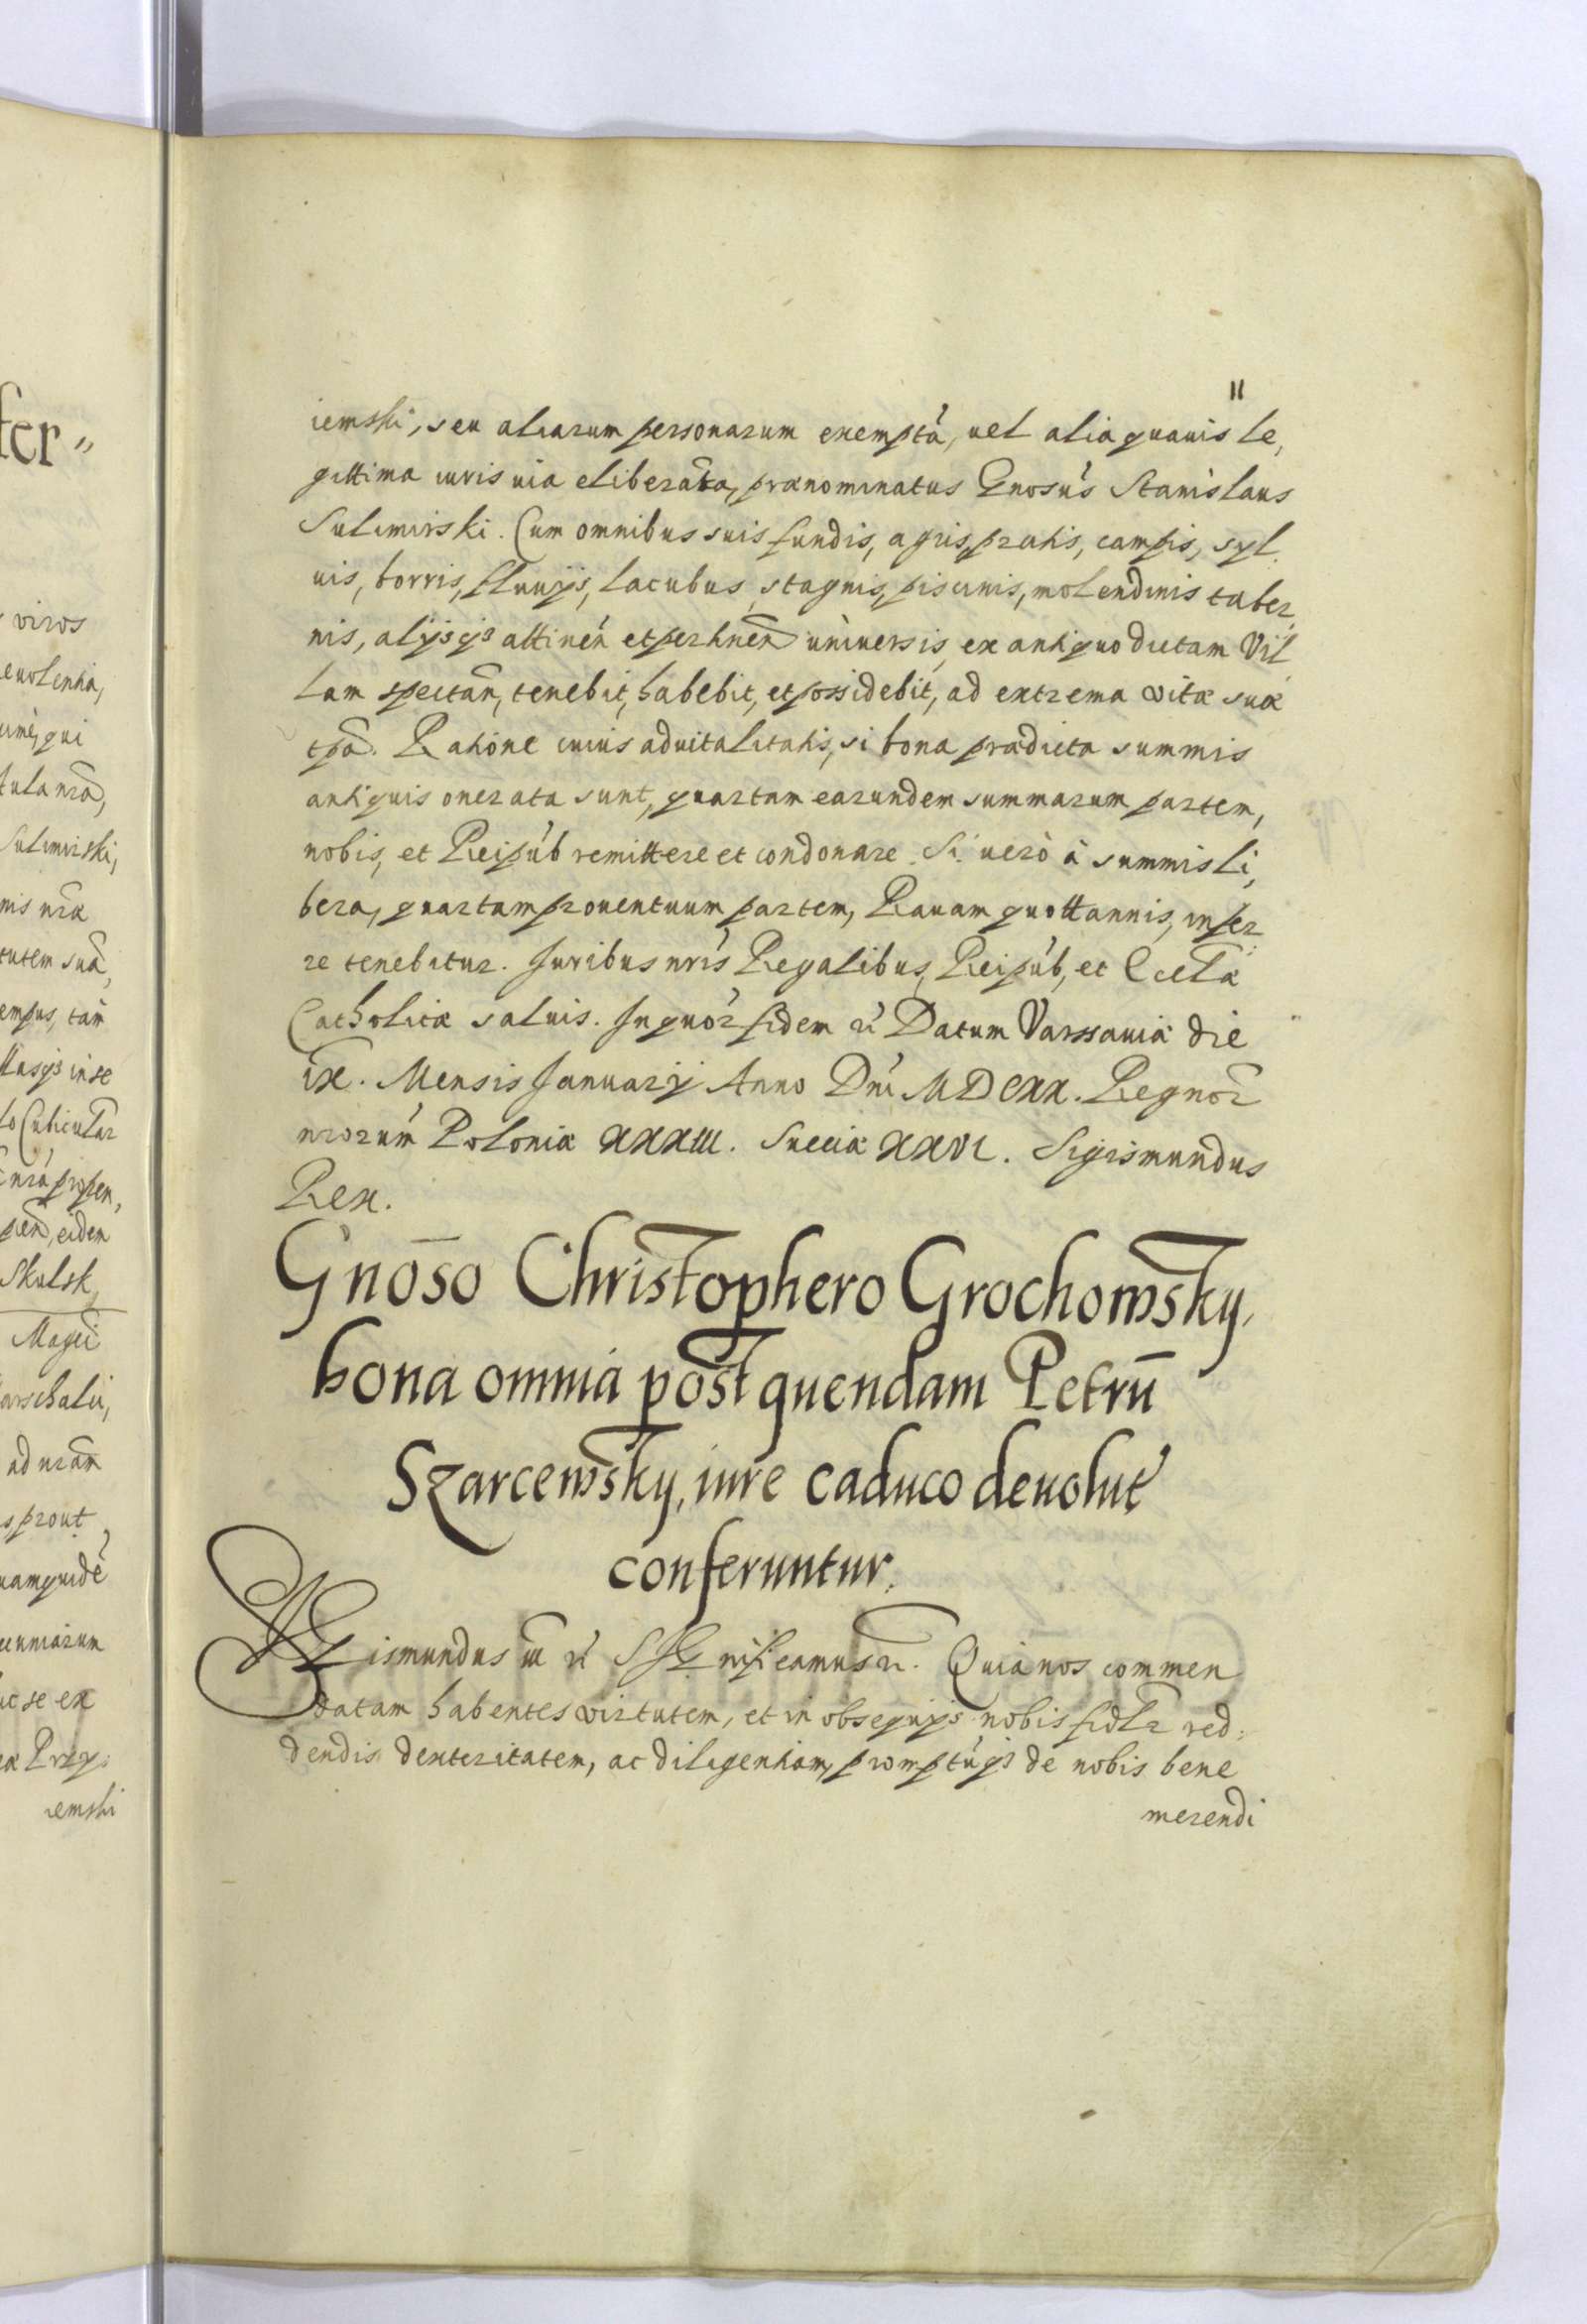 11
iemski, seu aliarum personarum exempta, uel alia quauis le,
gittima iuris uia eliberata, prænominatus Gnosus Stanislaus
Sulimirski. Cum omnibus suis fundis, agris, pratis, campis, syl
uis, borris, fluuijs, lacubus, stagnis, piscinis, molendinis taber,
nis, alijsqz attinen̄ et pertinen̄ uniuersis, ex antiquo dictam Vil
lam spectan̄, tenebit, habebit, et possidebit, ad extrema vitæ suæ
tpā. Ratione cuius aduitalitatis, si bona prædicta summis
antiquis onerata sunt, quartam earundem summarum partem,
nobis, et Reipub remittere et condonare. Si uero à summis li,
bera, quartam prouentuum partem, Rauam quottannis, infer
re tenebitur. Juribus nris Regalibus, Reipub, et Eccłæ
Catholicæ saluis. In quor fidem Datum Varssauiæ die
ix. Mensis Januarij Anno Dni MDCXX. Regnor
nrorum Poloniæ XXXIII. Sueciæ XXVI. Sigismundus
Rex.
Gnōso Christophero Grochowsky,
bona omnia post quendam Petrū
Szarcewsky, iure caduco deuolut
conferuntur.
SIGismundus III SIGnificamus. Quia nos commen
datam habentes virtutem, et in obsequijs nobis fidłr red:
dendis dexteritatem, ac diligentiam, promptuqz de nobis bene
merendi
fer„
viros
euolentia,
Sulimirski,
tutem suā,
empus, tam
Skulsk
Magci
arschalci,
ad nrām
s prout
uamquidē
ecuniarum
ac se ex
iemski